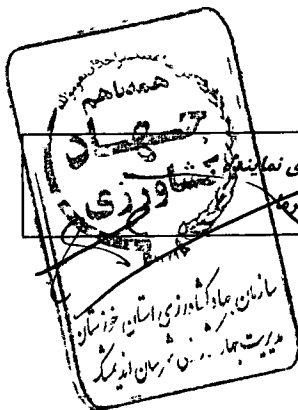 همه با هم
جهاد
ی نماینده
کشاورزی
سازمان جهاد کشاورزی استان خوزستان
مدیریت جهاد کشاورزی شهرستان اندیمشک